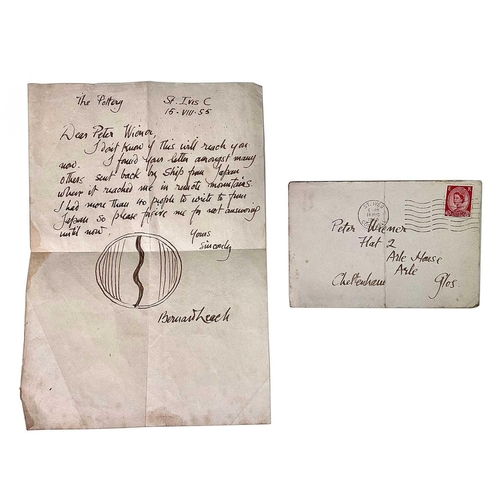 The Pottery St. Ives C
15-VIII-55
Dear Peter Wiener,
I don't know if this will reach you
now. I found your letter amongst many
others sent back by ship from Japan
where it reached me in remote mountains.
I had more than 40 people to write to from
Japan so please forgive me for not answering
until now.
Yours
Sincerely
Bernard Leach
Peter Wiener
Flat 2
Arle House
Arle
Cheltenham Glos